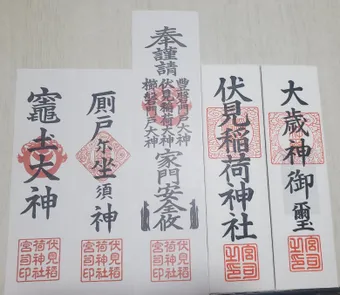 大歳神御璽
宮司
之印
伏見稲荷神社
奉謹請
伏見稲荷大神
家門安全攸
伏見稲
荷神社
宮司印
厠戸尓坐須神
伏見稲
荷神社
宮司印
竈土大神
伏見稲
荷神社
宮司印